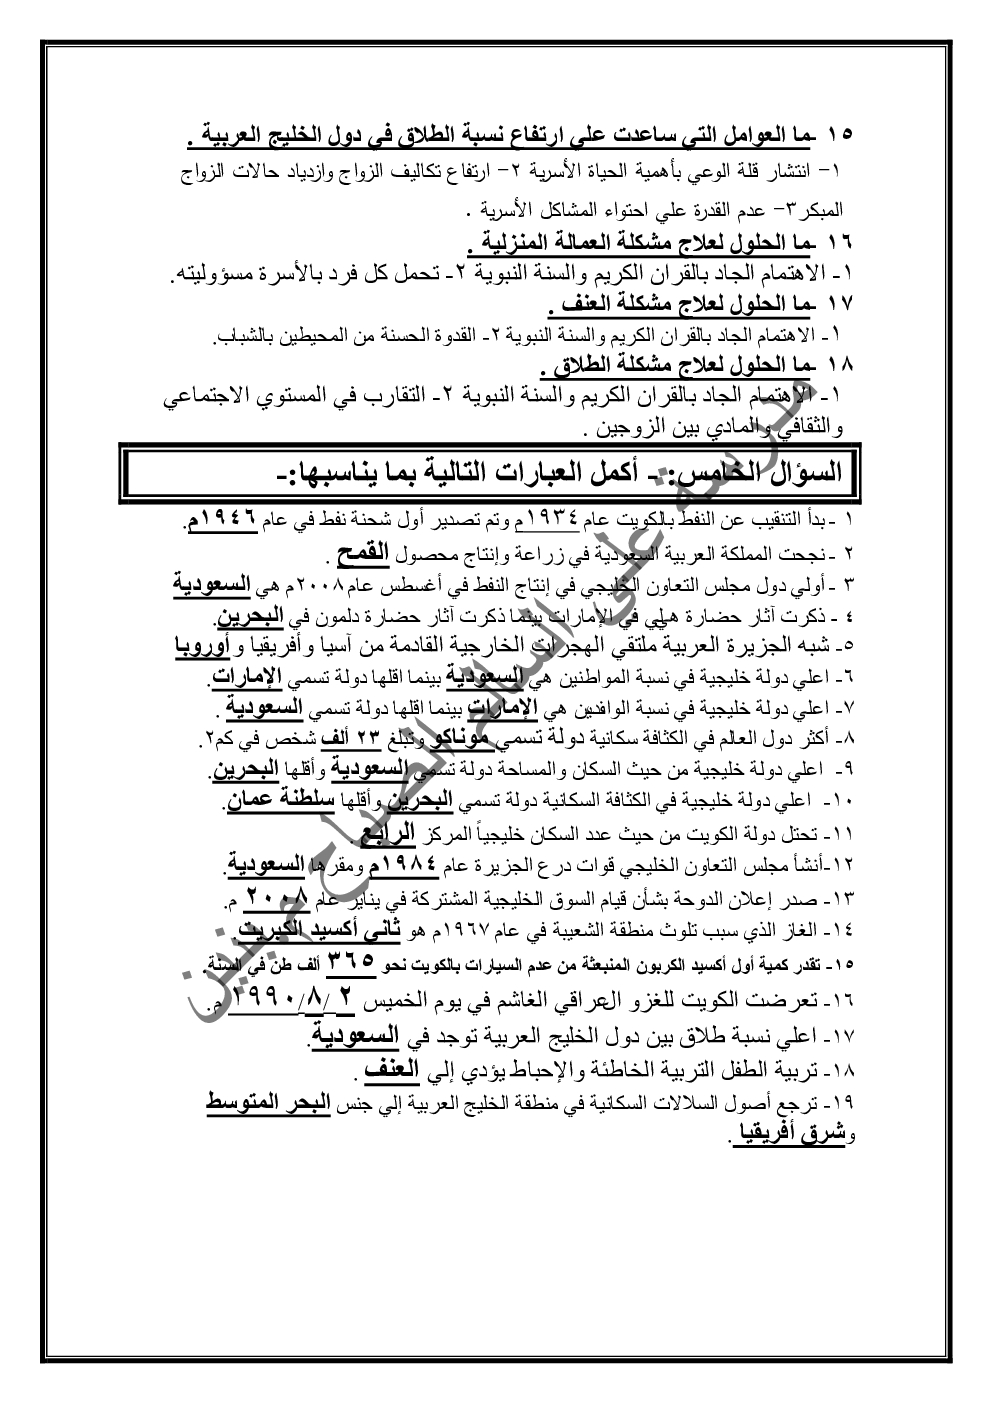 ١٥ -ما العوامل التي ساعدت علي ارتفاع نسبة الطلاق في دول الخليج العربية .
١- انتشار قلة الوعي بأهمية الحياة الأسرية ٢- ارتفاع تكاليف الزواج وازدياد حالات الزواج
المبكر٣- عدم القدرة علي احتواء المشاكل الأسرية .
١٦ -ما الحلول لعلاج مشكلة العمالة المنزلية .
١- الاهتمام الجاد بالقران الكريم والسنة النبوية ٢- تحمل كل فرد بالأسرة مسؤوليته.
١٧ -ما الحلول لعلاج مشكلة العنف .
١- الاهتمام الجاد بالقران الكريم والسنة النبوية ٢- القدوة الحسنة من المحيطين بالشباب.
١٨ -ما الحلول لعلاج مشكلة الطلاق .
١- الاهتمام الجاد بالقران الكريم والسنة النبوية ٢- التقارب في المستوي الاجتماعي
والثقافي والمادي بين الزوجين .
السؤال الخامس: - أكمل العبارات التالية بما يناسبها:-
١ - بدأ التنقيب عن النفط بالكويت عام ١٩٣٤م وتم تصدير أول شحنة نفط في عام ١٩٤٦م.
٢ - نجحت المملكة العربية السعودية في زراعة وإنتاج محصول القمح .
٣ - أولي دول مجلس التعاون الخليجي في إنتاج النفط في أغسطس عام٢٠٠٨م هي السعودية
٤ - ذكرت آثار حضارة هيلي في الإمارات بينما ذكرت آثار حضارة دلمون في البحرين.
٥- شبه الجزيرة العربية ملتقي الهجرات الخارجية القادمة من آسيا وأفريقيا و أوروبا
٦- اعلي دولة خليجية في نسبة المواطنين هي السعودية بينما اقلها دولة تسمي الإمارات.
٧- اعلي دولة خليجية في نسبة الوافدين هي الإمارات بينما اقلها دولة تسمي السعودية .
٨- أكثر دول العالم في الكثافة سكانية دولة تسمي موناكو وتبلغ ٢٣ ألف شخص في كم٢.
٩- اعلي دولة خليجية من حيث السكان والمساحة دولة تسمي السعودية وأقلها البحرين.
١٠- اعلي دولة خليجية في الكثافة السكانية دولة تسمي البحرين وأقلها سلطنة عمان.
١١- تحتل دولة الكويت من حيث عدد السكان خليجياً المركز الرابع .
١٢-أنشأ مجلس التعاون الخليجي قوات درع الجزيرة عام ١٩٨٤م ومقرها السعودية.
١٣- صدر إعلان الدوحة بشأن قيام السوق الخليجية المشتركة في يناير عام ٢٠٠٨ م.
١٤- الغاز الذي سبب تلوث منطقة الشعيبة في عام ١٩٦٧م هو ثاني أكسيد الكبريت.
١٥- تقدر كمية أول أكسيد الكربون المنبعثة من عدم السيارات بالكويت نحو ٣٦٥ ألف طن في السنة.
١٦- تعرضت الكويت للغزو العراقي الغاشم في يوم الخميس ٢ /٨/ ١٩٩٠ م.
١٧- اعلي نسبة طلاق بين دول الخليج العربية توجد في السعودية.
١٨- تربية الطفل التربية الخاطئة والإحباط يؤدي إلي العنف .
١٩- ترجع أصول السلالات السكانية في منطقة الخليج العربية إلي جنس البحر المتوسط
وشرق أفريقيا .
مدرسة علي السالم الصباح م بنين